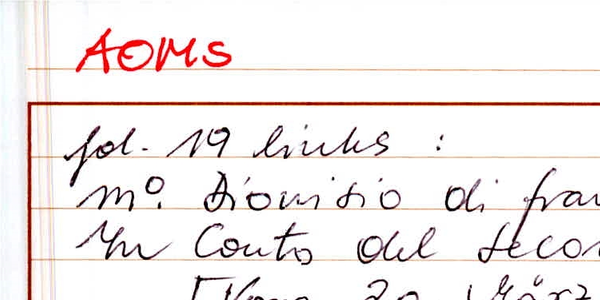 AOMS
fol. 19 links :
mo. Dionisio di fran
Un Conto del secon
20 März